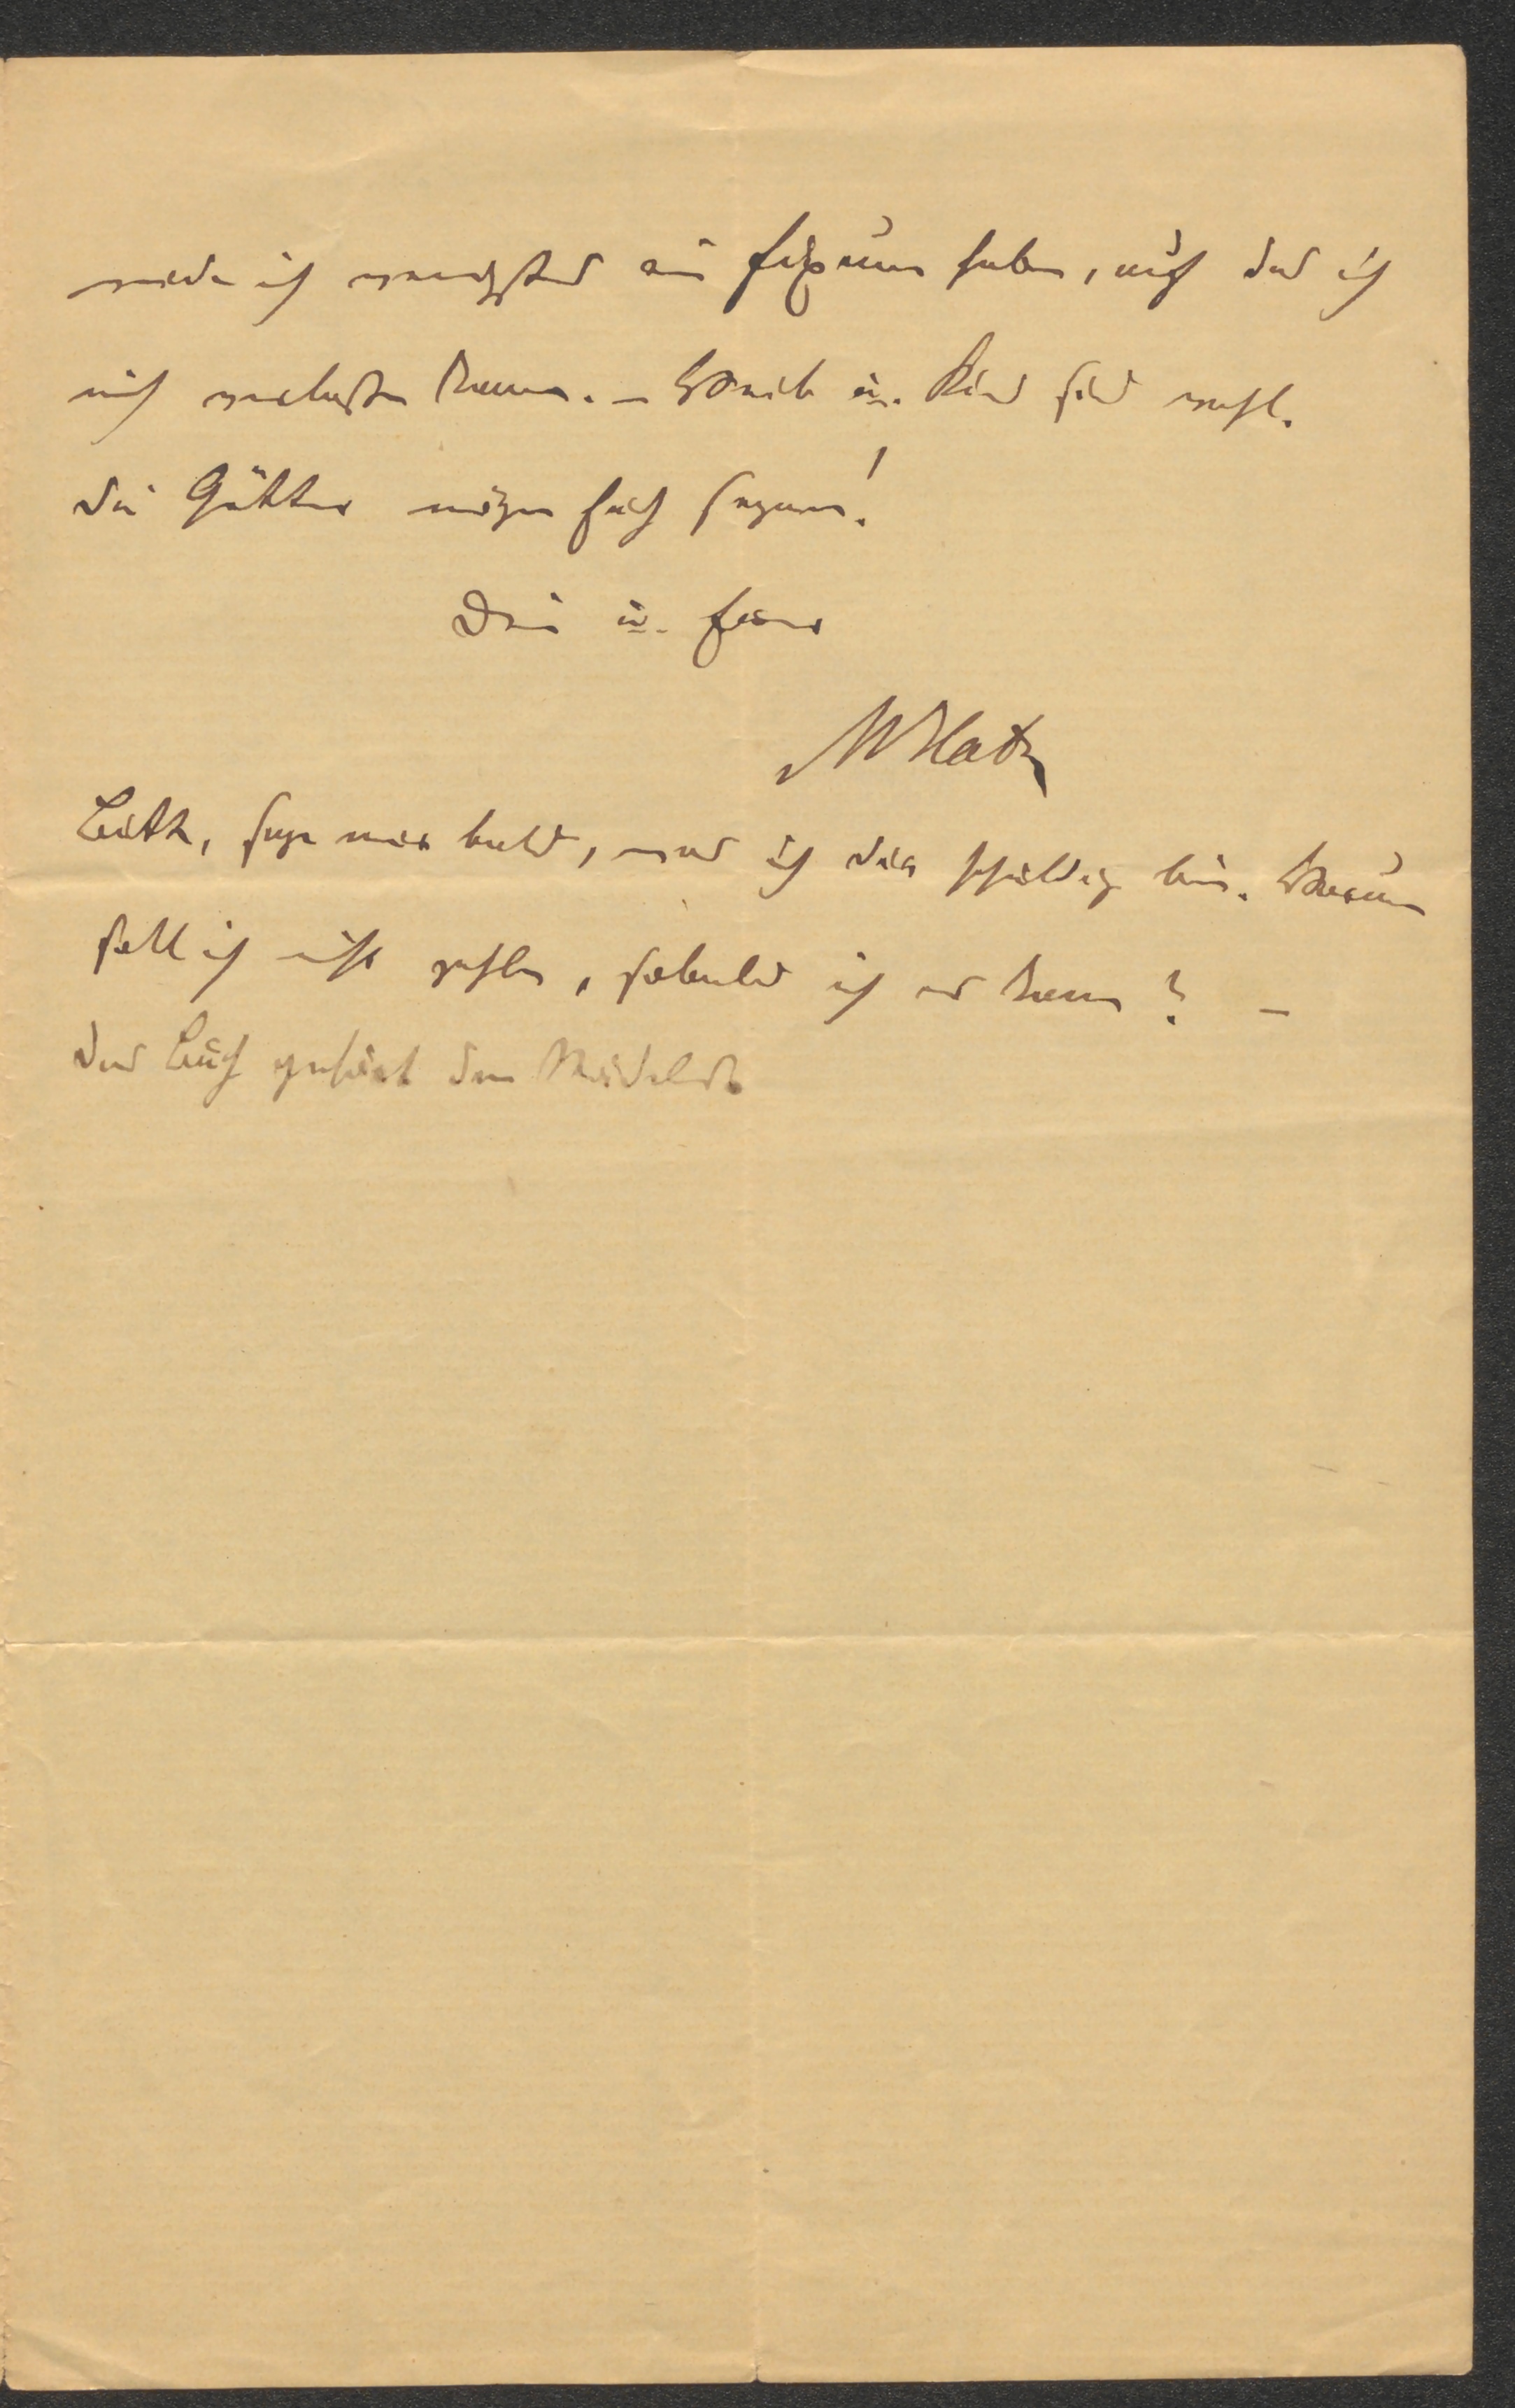 werde ich wenigstens ein Fixum haben, auf das ich
mich verlassen kann. – Weib u. Kind sind wohl.
Die Götter mögen Euch segnen!
Dein u. Euer
WKlatz
Bitte, sage mir bald, was ich dir schuldig bin. Warum
soll ich nicht zahlen, sobald ich es kann? –
Das Buch gehört dem